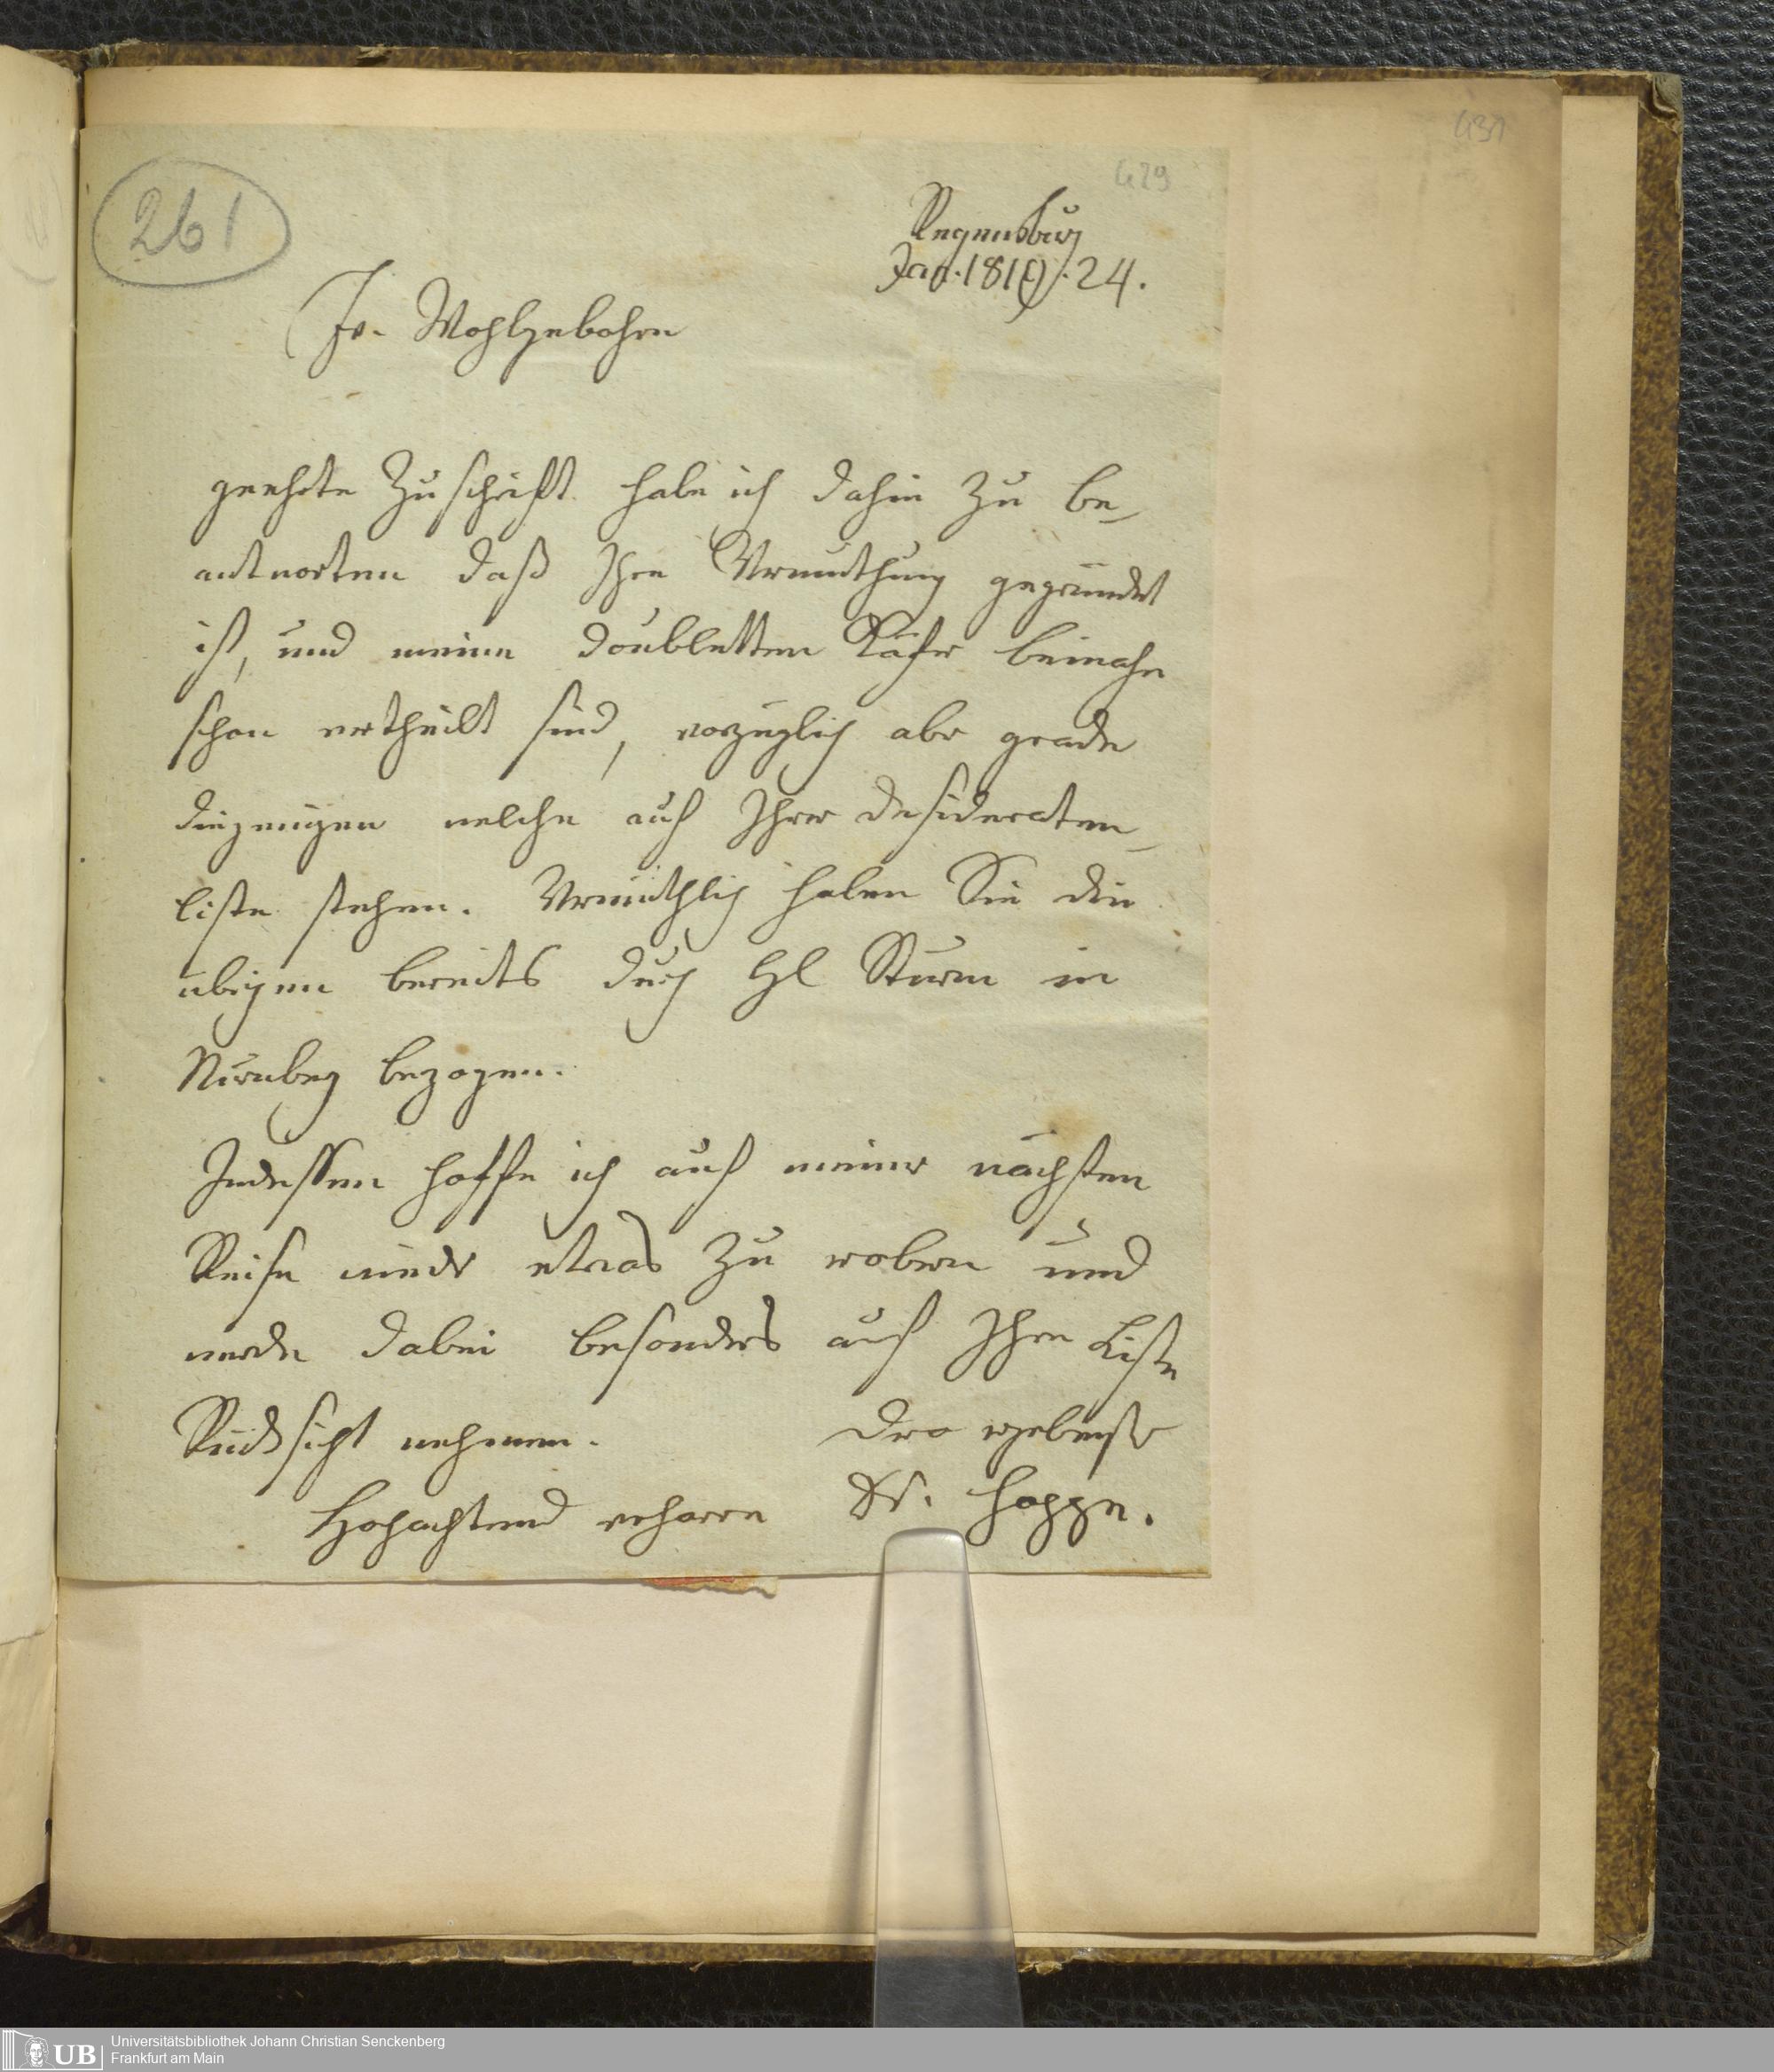 431
429
261
Regensburg
Jan. 1819. 24.
Ir. Wohlgebohren
geehrte Zuschrift habe ich dahin zu be-
antworten daß Ihre Vermuthung gegründet
ist, und meine doubletten Käfer beinahe
schon vertheilt sind, vorzüglich aber grade
diejenigen welche auf Ihrer desideraten-
liste stehen. Vermuthlich haben Sie die
übrigen bereits durch H Sturm in
Nürnberg bezogen.
Indessen hoffe ich auf meiner nächsten
Reise wieder etwas zu erobern und
werde dabei besonders auf Ihre Liste
Rücksicht nehmen.
Dero ergebenster
Hochachtend verharre Dr. Hoppe.
UB
Universitätsbibliothek Johann Christian Senckenberg
Frankfurt am Main